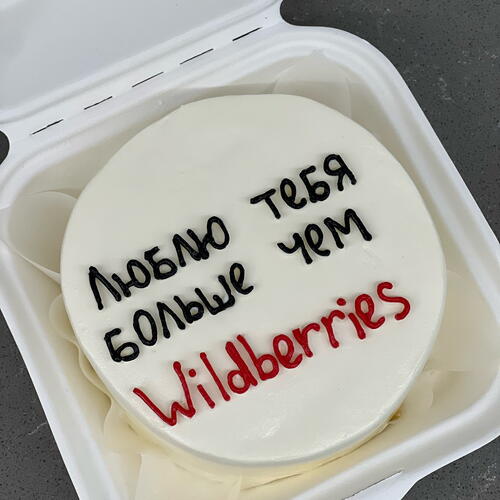 люблю тебя
больше чем
Wildberries